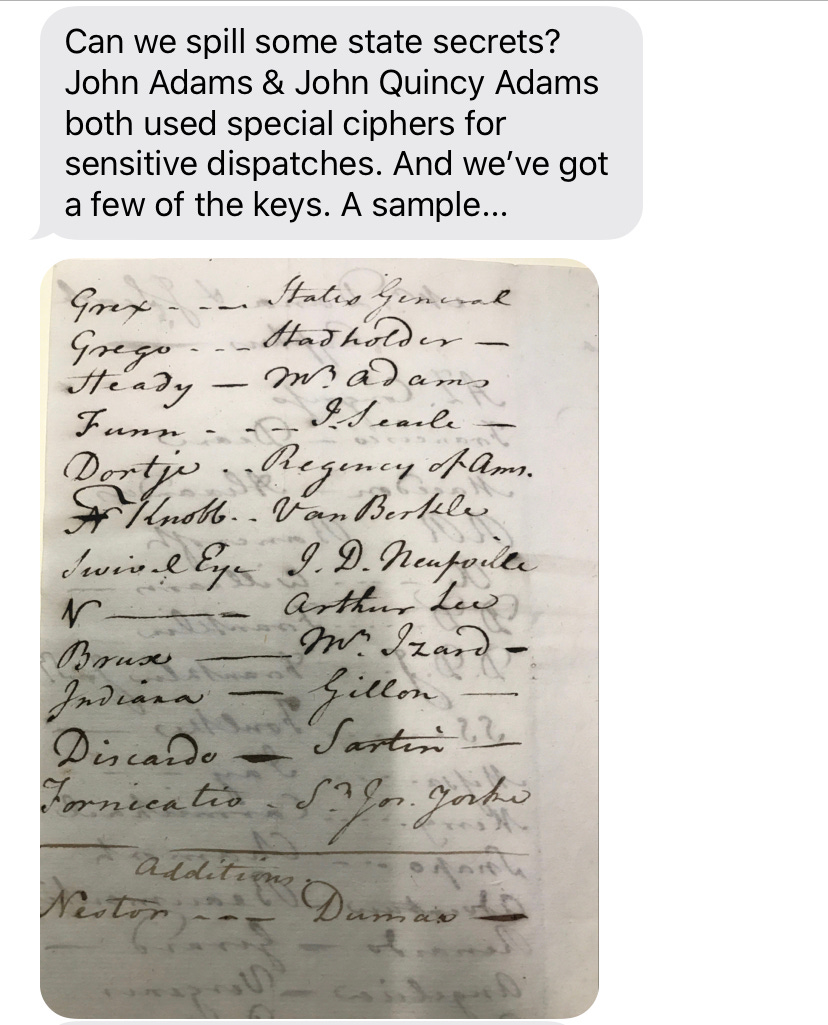 Can we spill some state secrets?
John Adams & John Quincy Adams
both used special ciphers for
sensitive dispatches. And we’ve got
a few of the keys. A sample...
Grex - - — States General
Grego - - - Stadholder —
Steady — Mr. Adams
Funn - - - J. Searle —
Dortje - - Regency of Ams.
Knobb. - - Van Berkle
Swivel Eye J. D. Neufville
N ——— Arthur Lee
Brux —— Mr. Izard -
Indiana — Gillon —
Discardo — Sartin —
Fornicatio - Sr. Jos. Yorke
Additions.
Nestor - - - Dumas —